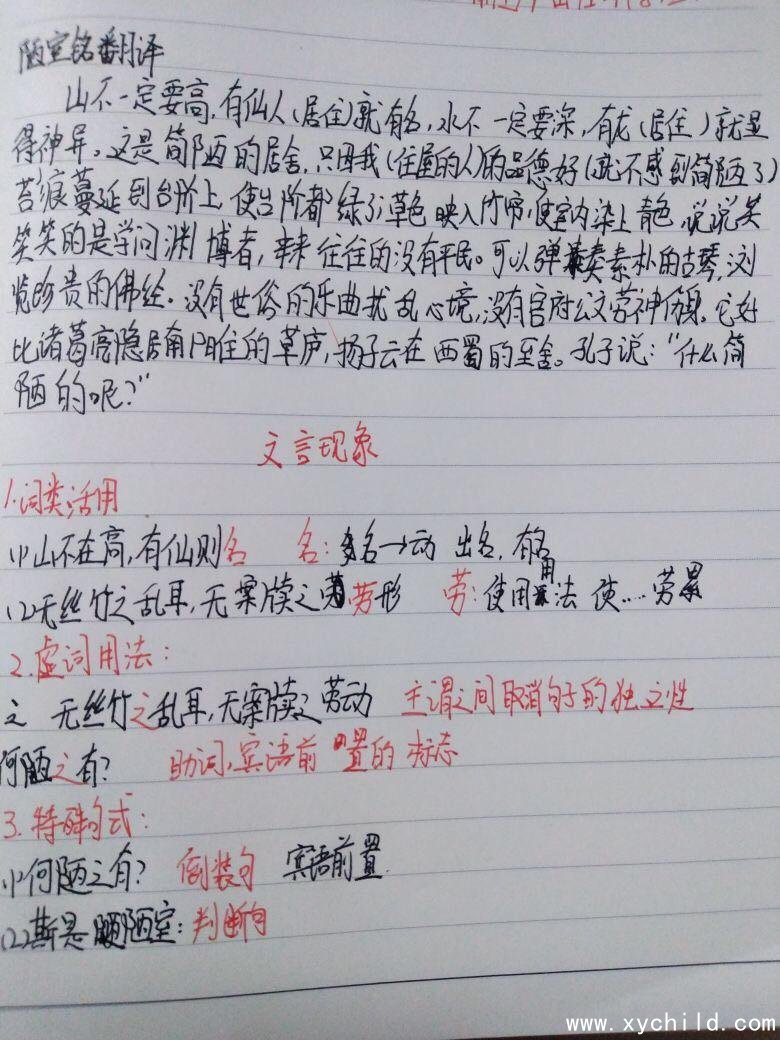 陋室铭翻译
山不一定要高,有仙人(居住)就有名,水不一定要深,有龙(居住)就显
得神异。这是简陋的居舍,只因我(住屋的人)的品德好(就不感到简陋了)
苔痕蔓延到台阶上,使台阶都绿了;草色映入竹帘,使室内染上青色。说说笑
笑的是学问渊博者,来往往的没有平民。可以弹奏素朴的古琴,浏
览珍贵的佛经。没有世俗的乐曲扰乱心境,没有官府公文劳神伤身。它好
比诸葛亮隐居南阳住的草庐,扬子云在西蜀的至舍。孔子说:“什么简
陋的呢?”
文言现象
1.词类活用
(1)山不在高,有仙则名 名:名→动 出名,有名
(2)无丝竹之乱耳,无案牍之劳形 劳:使用用法 使....劳累
2.虚词用法:
之 无丝竹之乱耳,无案牍之劳动 主谓之间取消句子的独立性
何陋之有? 助词,宾语前置的标志
3.特殊句式:
(1)何陋之有? 倒装句 宾语前置
(2)斯是陋室:判断句
www.xychild.com